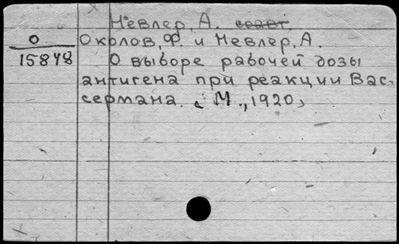 Невлер, А. соавт.
О
Околов, Ф. и Невлер, А.
15878
О выборе рабочей дозы
антигена при реакции Вас-
сермана. М., 1920,